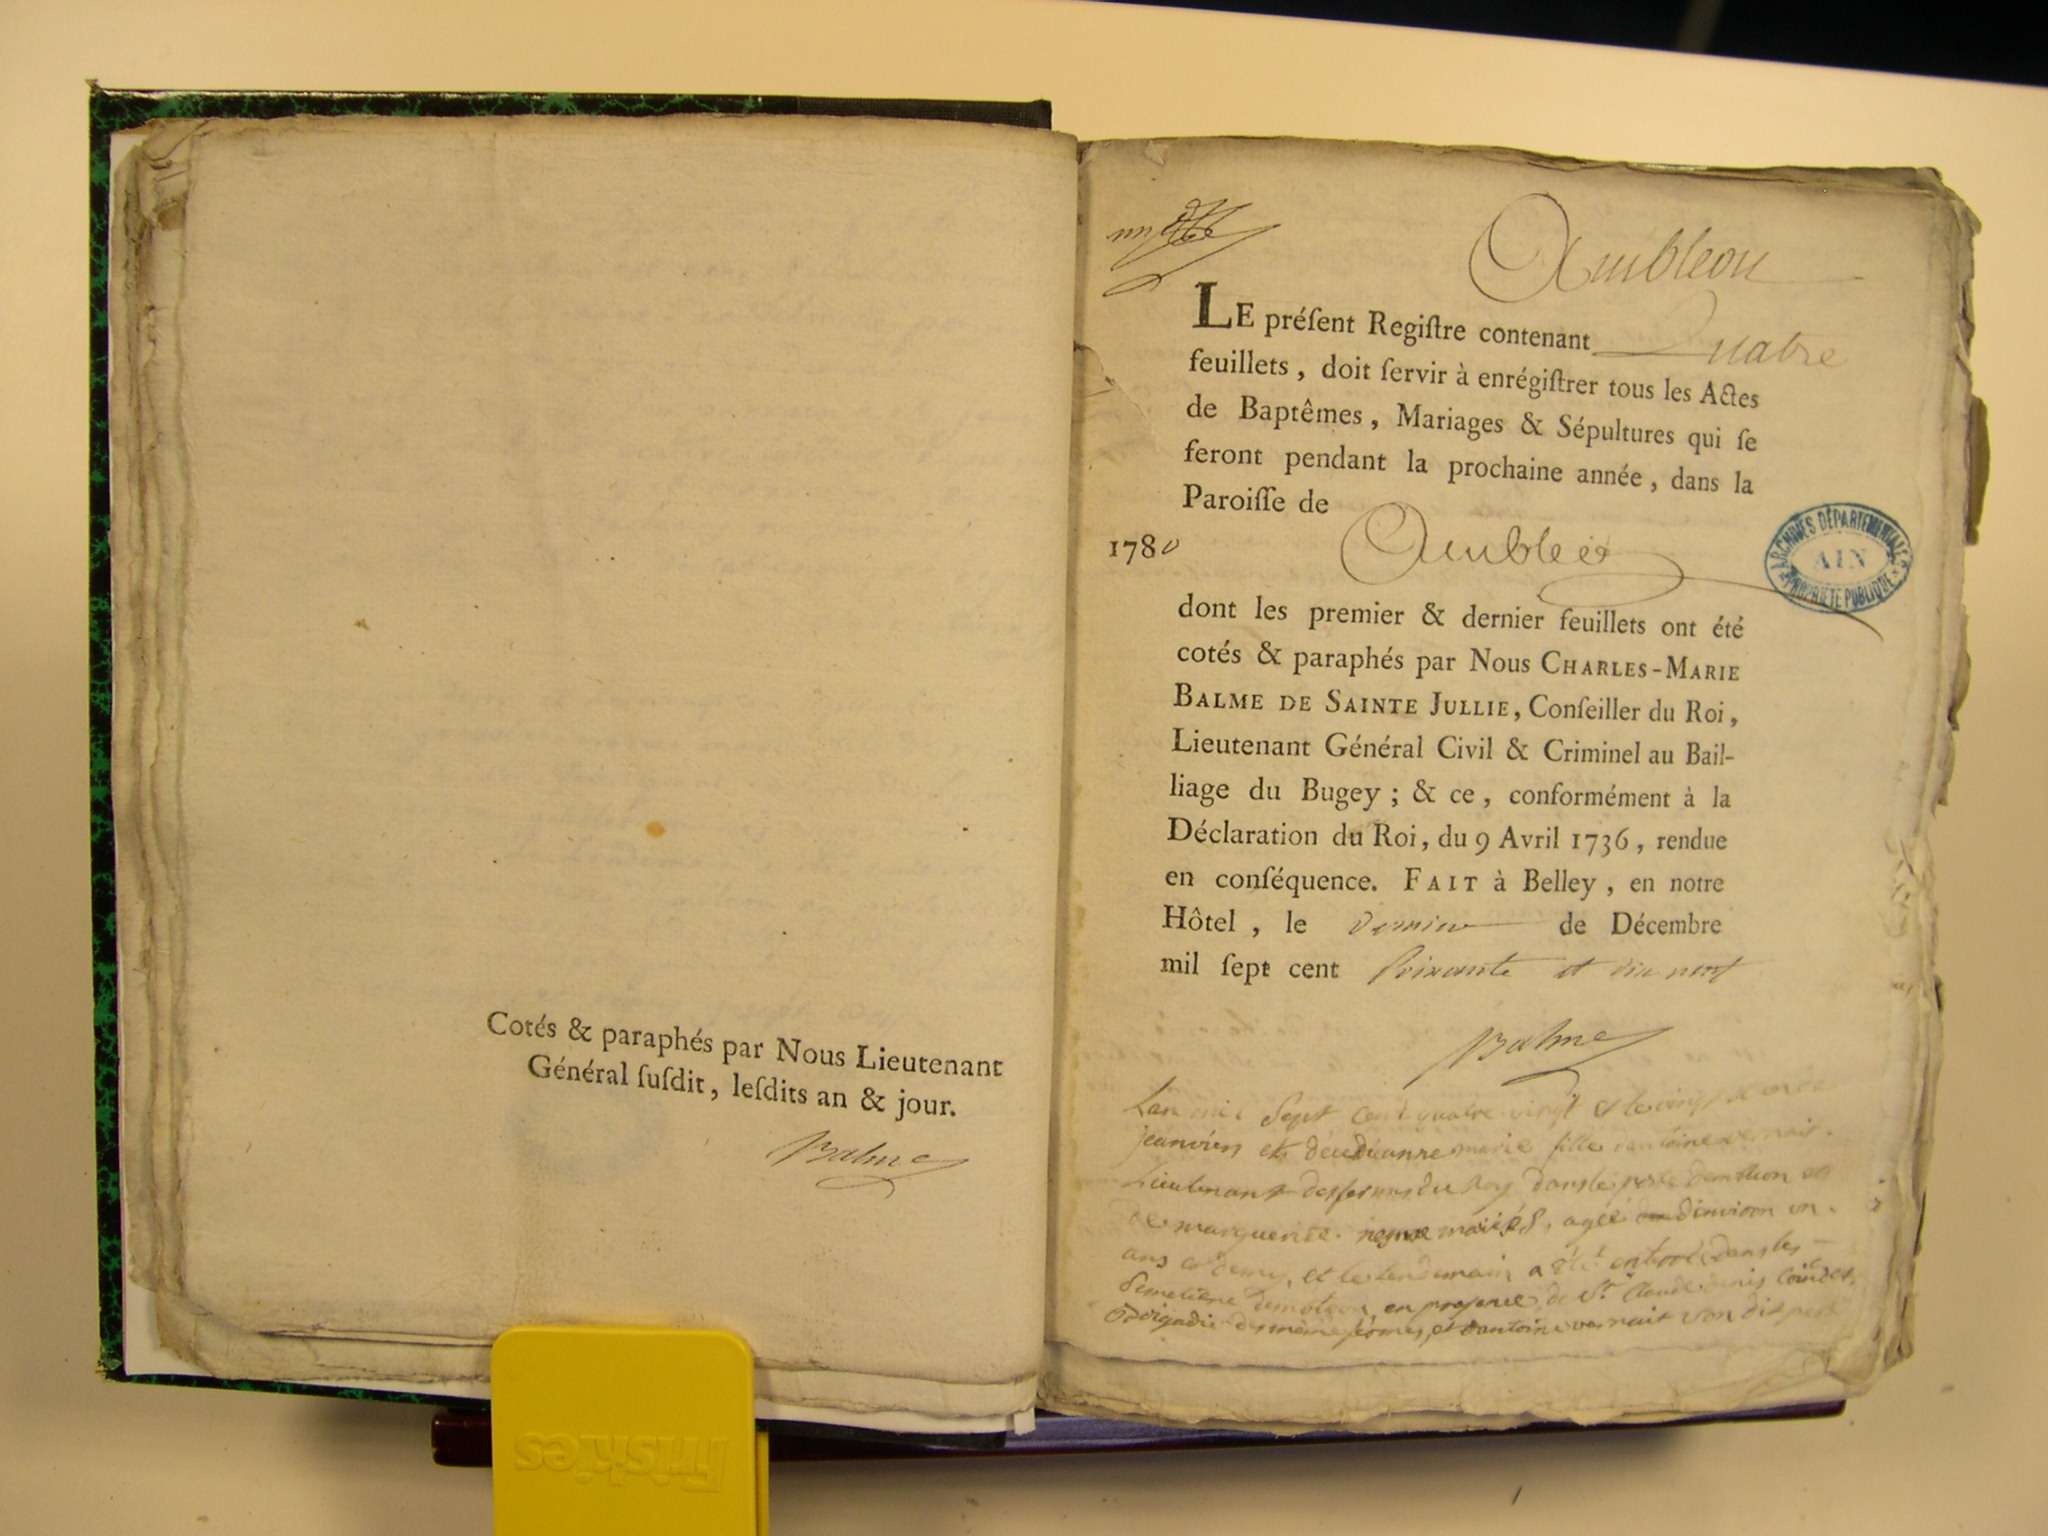 Cotés & paraphés par Nous Lieutenant
Général ſuſdit, leſdits an & jour.
Balme
Ambleon
LE préſent Regiſtre contenant Quatre
feuillets, doit ſervir à enrégiſtrer tous les Actes
de Baptêmes, Mariages & Sépultures qui ſe
feront pendant la prochaine année, dans la
Paroiſſe de
1780 Ambleo
ARCHIVES DÉPARTEMENTALES
AIN
PROPRIÉTÉ PUBLIQUE
dont les premier & dernier feuillets ont été
cotés & paraphés par Nous CHARLES-MARIE
BALME DE SAINTE JULLIE, Conſeiller du Roi,
Lieutenant Général Civil & Criminel au Bail-
liage du Bugey ; & ce, conformément à la
Déclaration du Roi, du 9 Avril 1736, rendue
en conſéquence. FAIT à Belley, en notre
Hôtel, le dernier de Décembre
mil ſept cent soixante et dix neuf
Balme
Lan mil Sept cent quatre vingt et le vingt
jeanvier et marie fille
Lieutenant des fermes du Roy dans le et
de marguerite mariés, agée d'environ un
ans et demy, et le lendemain a été dans les
en presence de Sr Claude denis
et antoine vernait son dit pere
Friskies